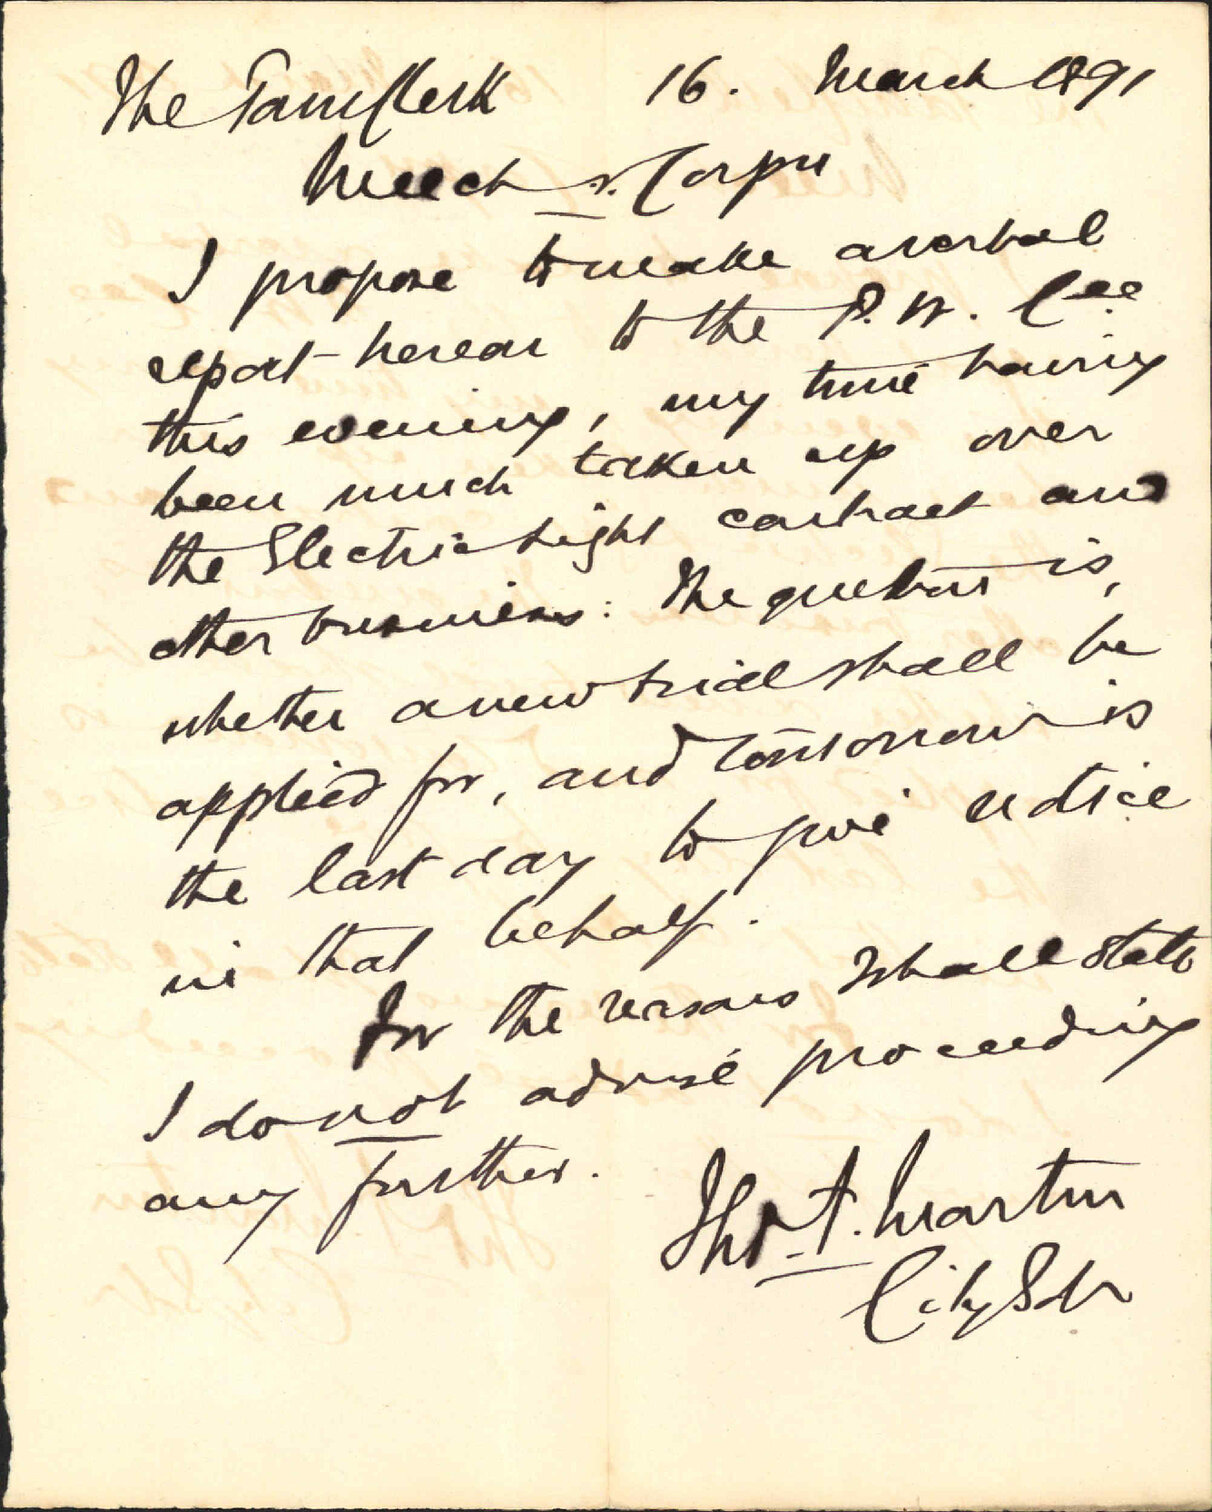 The Town Clerk 16. March 1891
Meech v. Corpn
I propose to make a verbal
report hereon to the P. W. Cee
this evening, my time having
been much taken up over
the Electric Light contract and
other business: The question is,
whether a new trial shall be
applied for, and tomorrow is
the last day to give notice
in that behalf.
For the reasons I shall state
I do not advise proceeding
any further.
Thos. F. Martin
City Solr